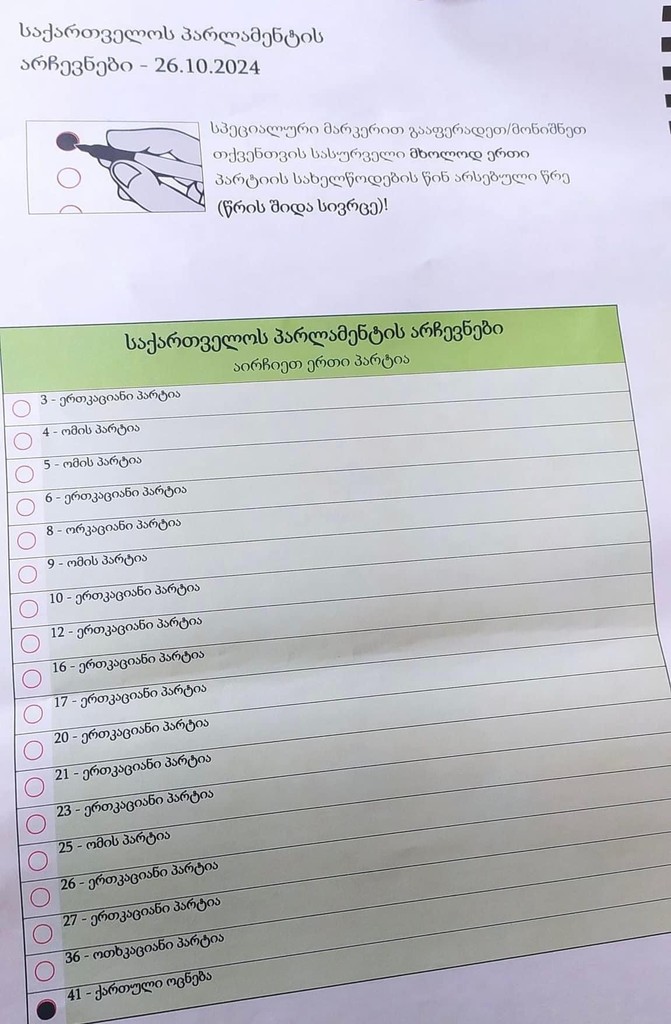 საქართველოს პარლამენტის
არჩევნები - 26.10.2024
სპეციალური მარკერით გააფერადეთ/მონიშნეთ
თქვენთვის სასურველი მხოლოდ ერთი
პარტიის სახელწოდების წინ არსებული წრე
(წრის შიდა სივრცე)!
საქართველოს პარლამენტის არჩევნები
აირჩიეთ ერთი პარტია
3 - ერთკაციანი პარტია
4 - ომის პარტია
5 - ომის პარტია
6 - ერთკაციანი პარტია
8 - ორკაციანი პარტია
9 - ომის პარტია
10 - ერთკაციანი პარტია
12 - ერთკაციანი პარტია
16 - ერთკაციანი პარტია
17 - ერთკაციანი პარტია
20 - ერთკაციანი პარტია
21 - ერთკაციანი პარტია
23 - ერთკაციანი პარტია
25 - ომის პარტია
26 - ერთკაციანი პარტია
27 - ერთკაციანი პარტია
36 - ოთხკაციანი პარტია
41 - ქართული ოცნება